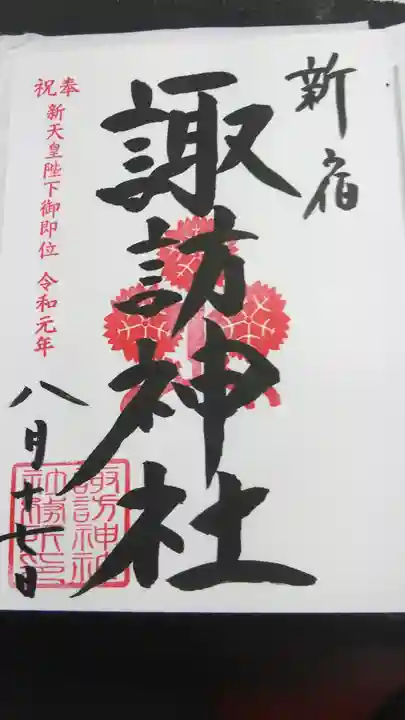 新宿
諏訪神社
奉祝
新天皇陛下御即位 令和元年
八月十七日
諏訪神社
社務所印